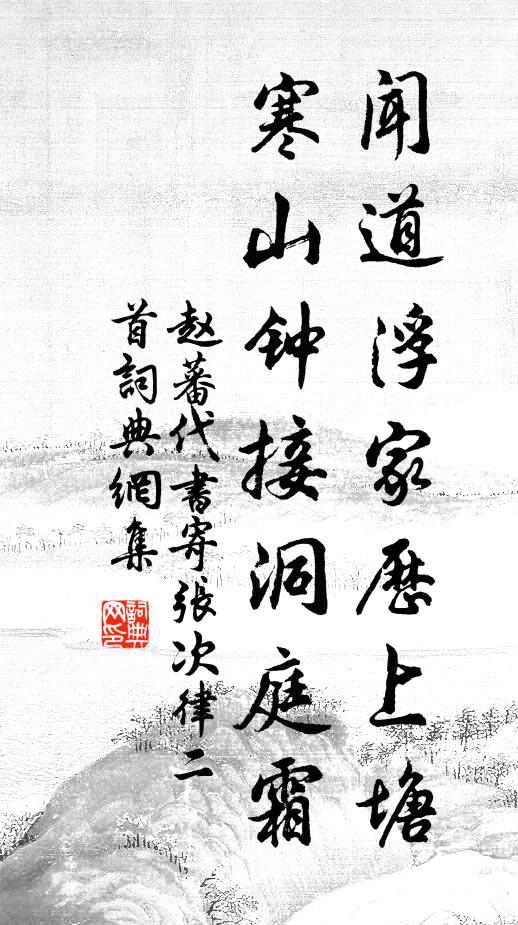 闻道浮家历上塘
寒山钟接洞庭霜
赵蕃代书寄张次律二
首词典網集
詞典
网印